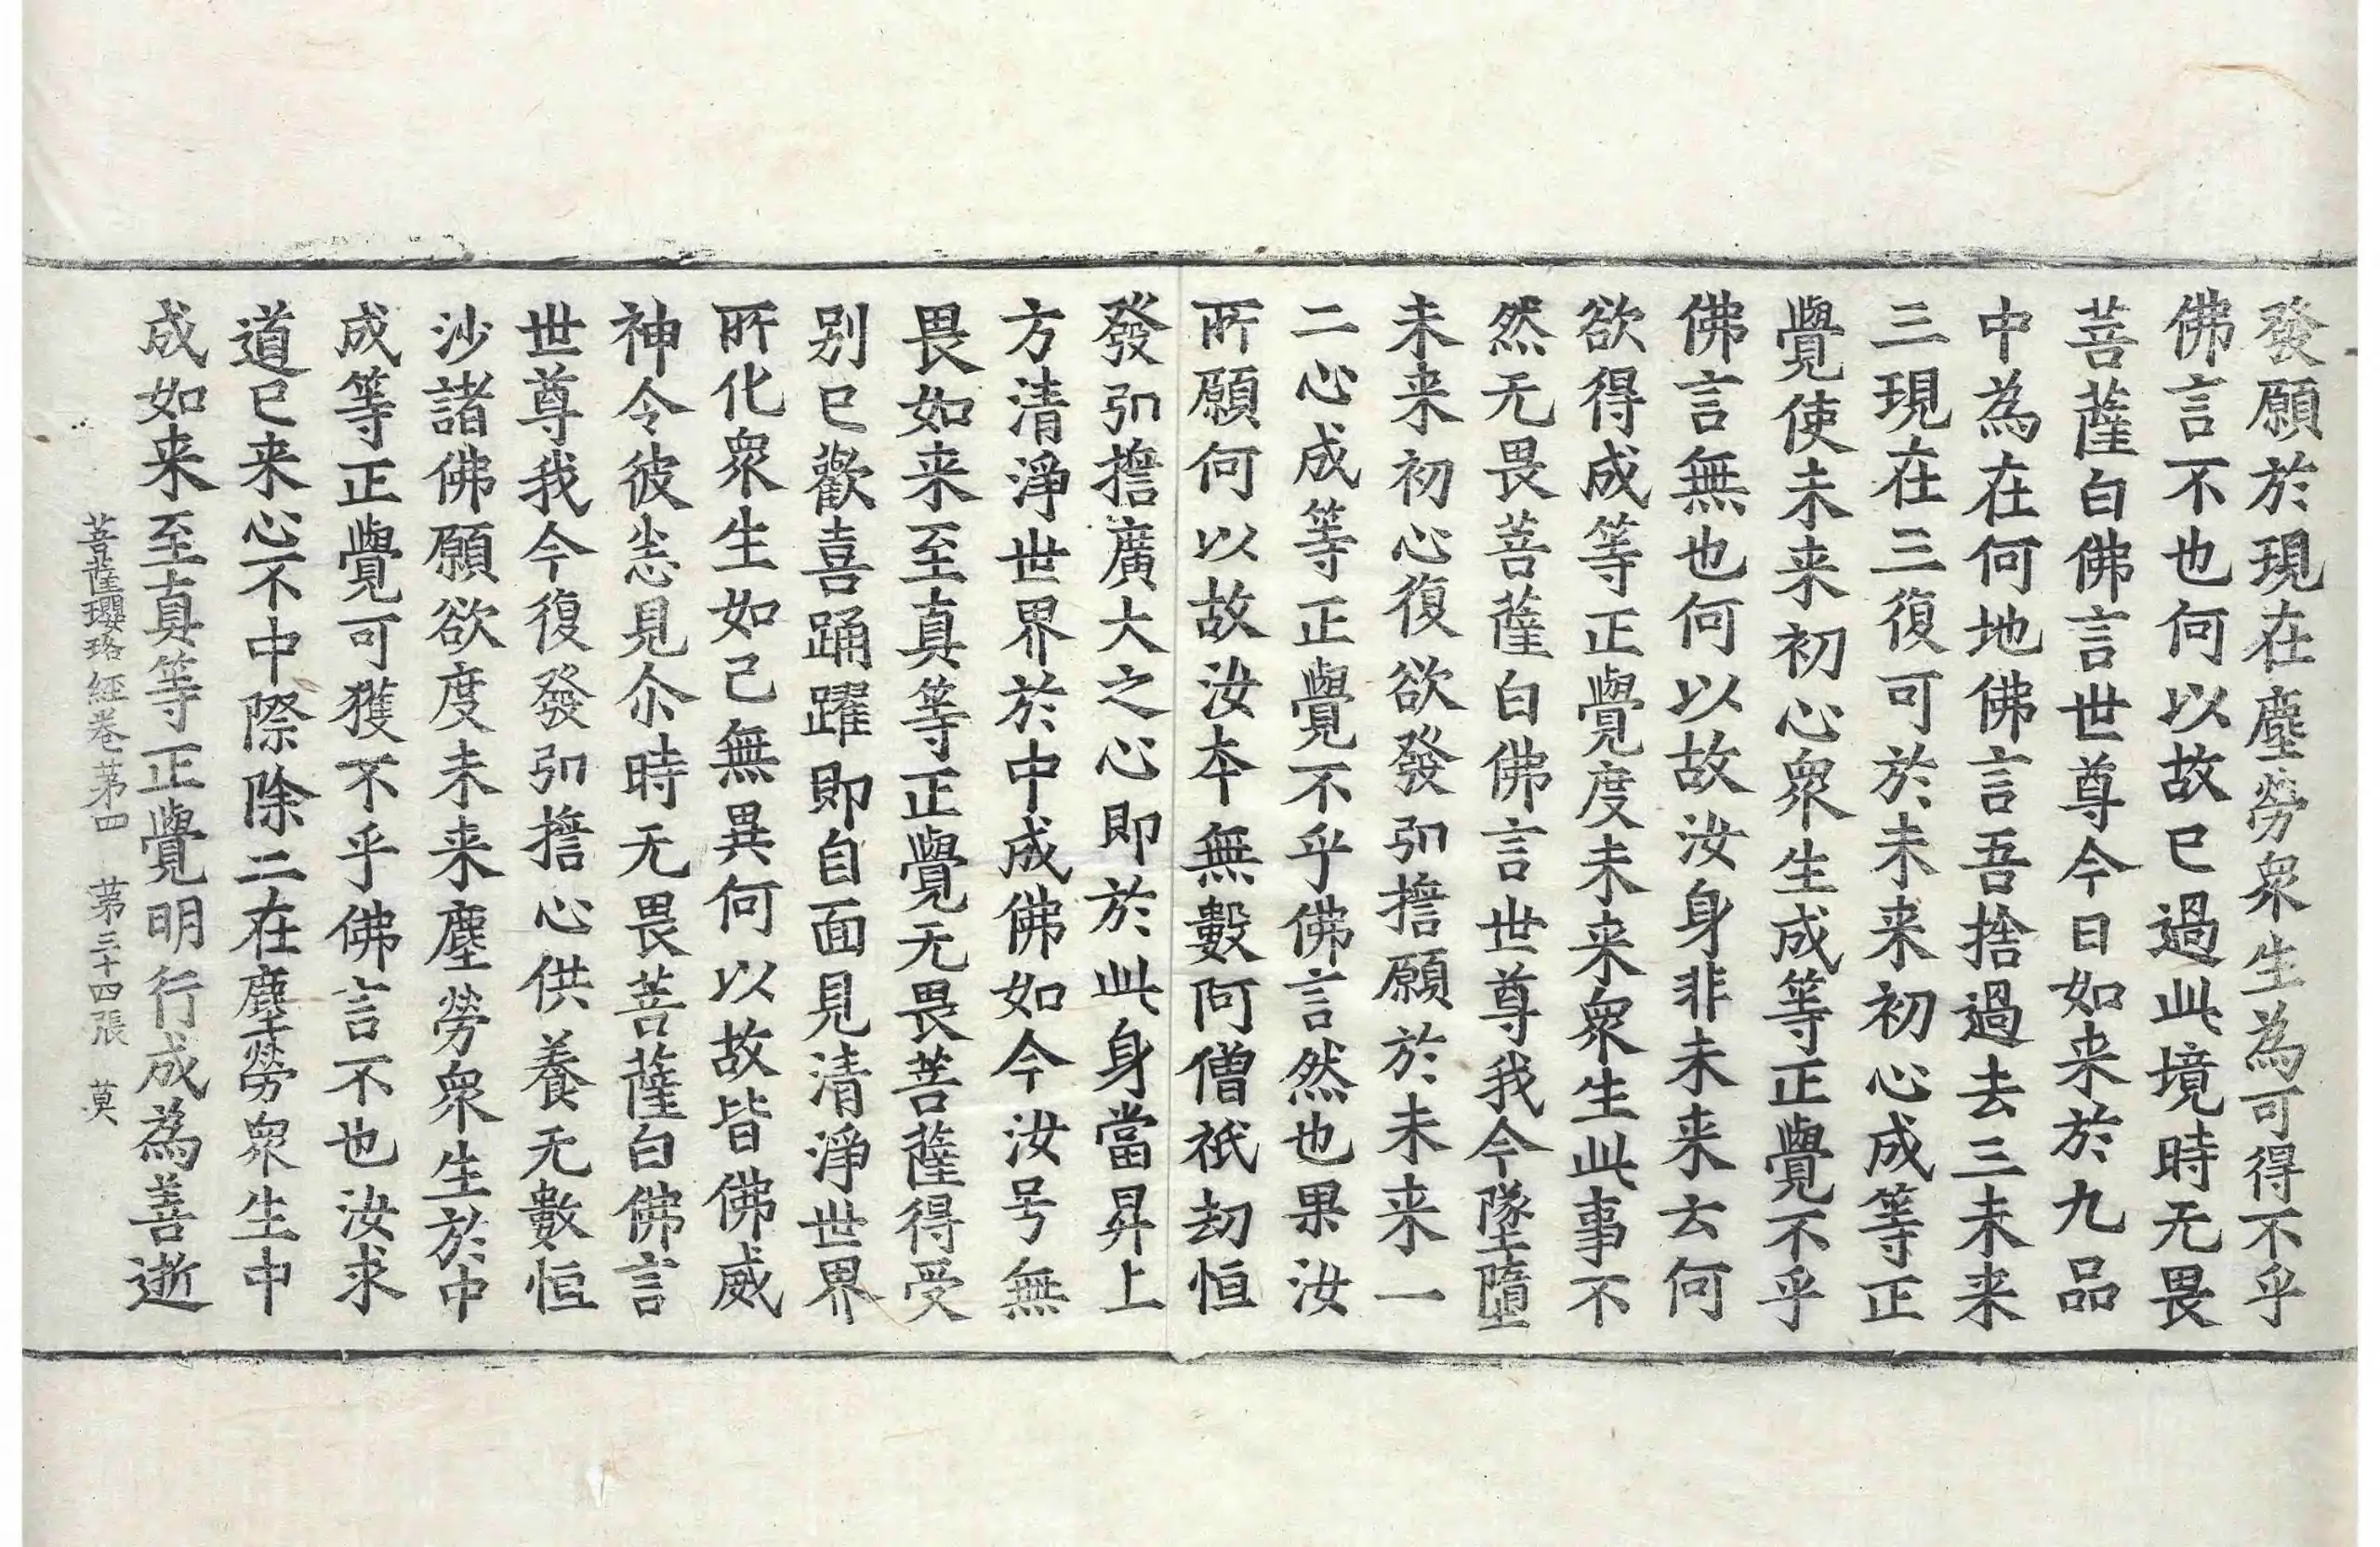 發願於現在塵勞衆生為可得不乎
佛言不也何以故已過此境時无畏
菩薩白佛言世尊今日如来於九品
中為在何地佛言吾捨過去三未来
三現在三復可於未来初心成等正
覺使未来初心衆生成等正覺不乎
佛言無也何以故汝身非未来去何
欲得成等正覺度未来衆生此事不
然无畏菩薩白佛言世尊我今墜墮
未来初心復欲發弘擔願於未来一
二心成等正覺不乎佛言然也果汝
所願何以故汝本無數阿僧祇劫恒
發弘擔廣大之心即於此身當昇上
方清淨世界於中成佛如今汝号無
畏如来至真等正覺无畏菩薩得受
别已歡喜踊躍即自面見清淨世界
所化衆生如己無異何以故皆佛威
神令彼悉見尒時无畏菩薩白佛言
世尊我今復發弘擔心供養无數恒
沙諸佛願欲度未来塵勞衆生於中
成等正覺可獲不乎佛言不也汝求
道已来心不中際除二在塵勞衆生中
成如来至真等正覺明行成為善逝
菩薩瓔珞經卷苐四 苐三十四張 莫